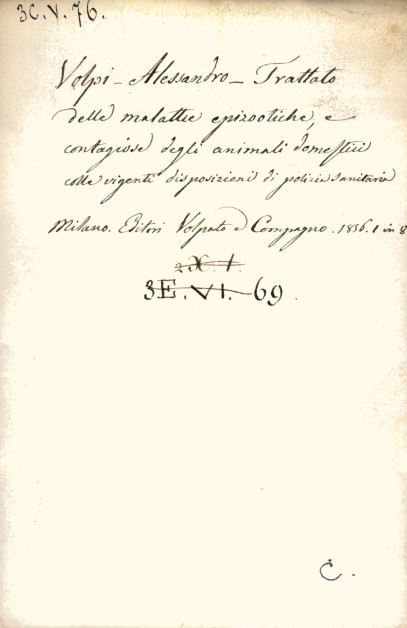 3C.V.76.
Volpi - Alessandro - Trattato
delle malattie epizootiche, e
contagiose degli animali domestici
colle vigenti disposizioni di polizia sanitaria
Milano. Editori Volpato e Compagno. 1836. 1 in 8
2 X. 1.
3E. VI. 69.
C.